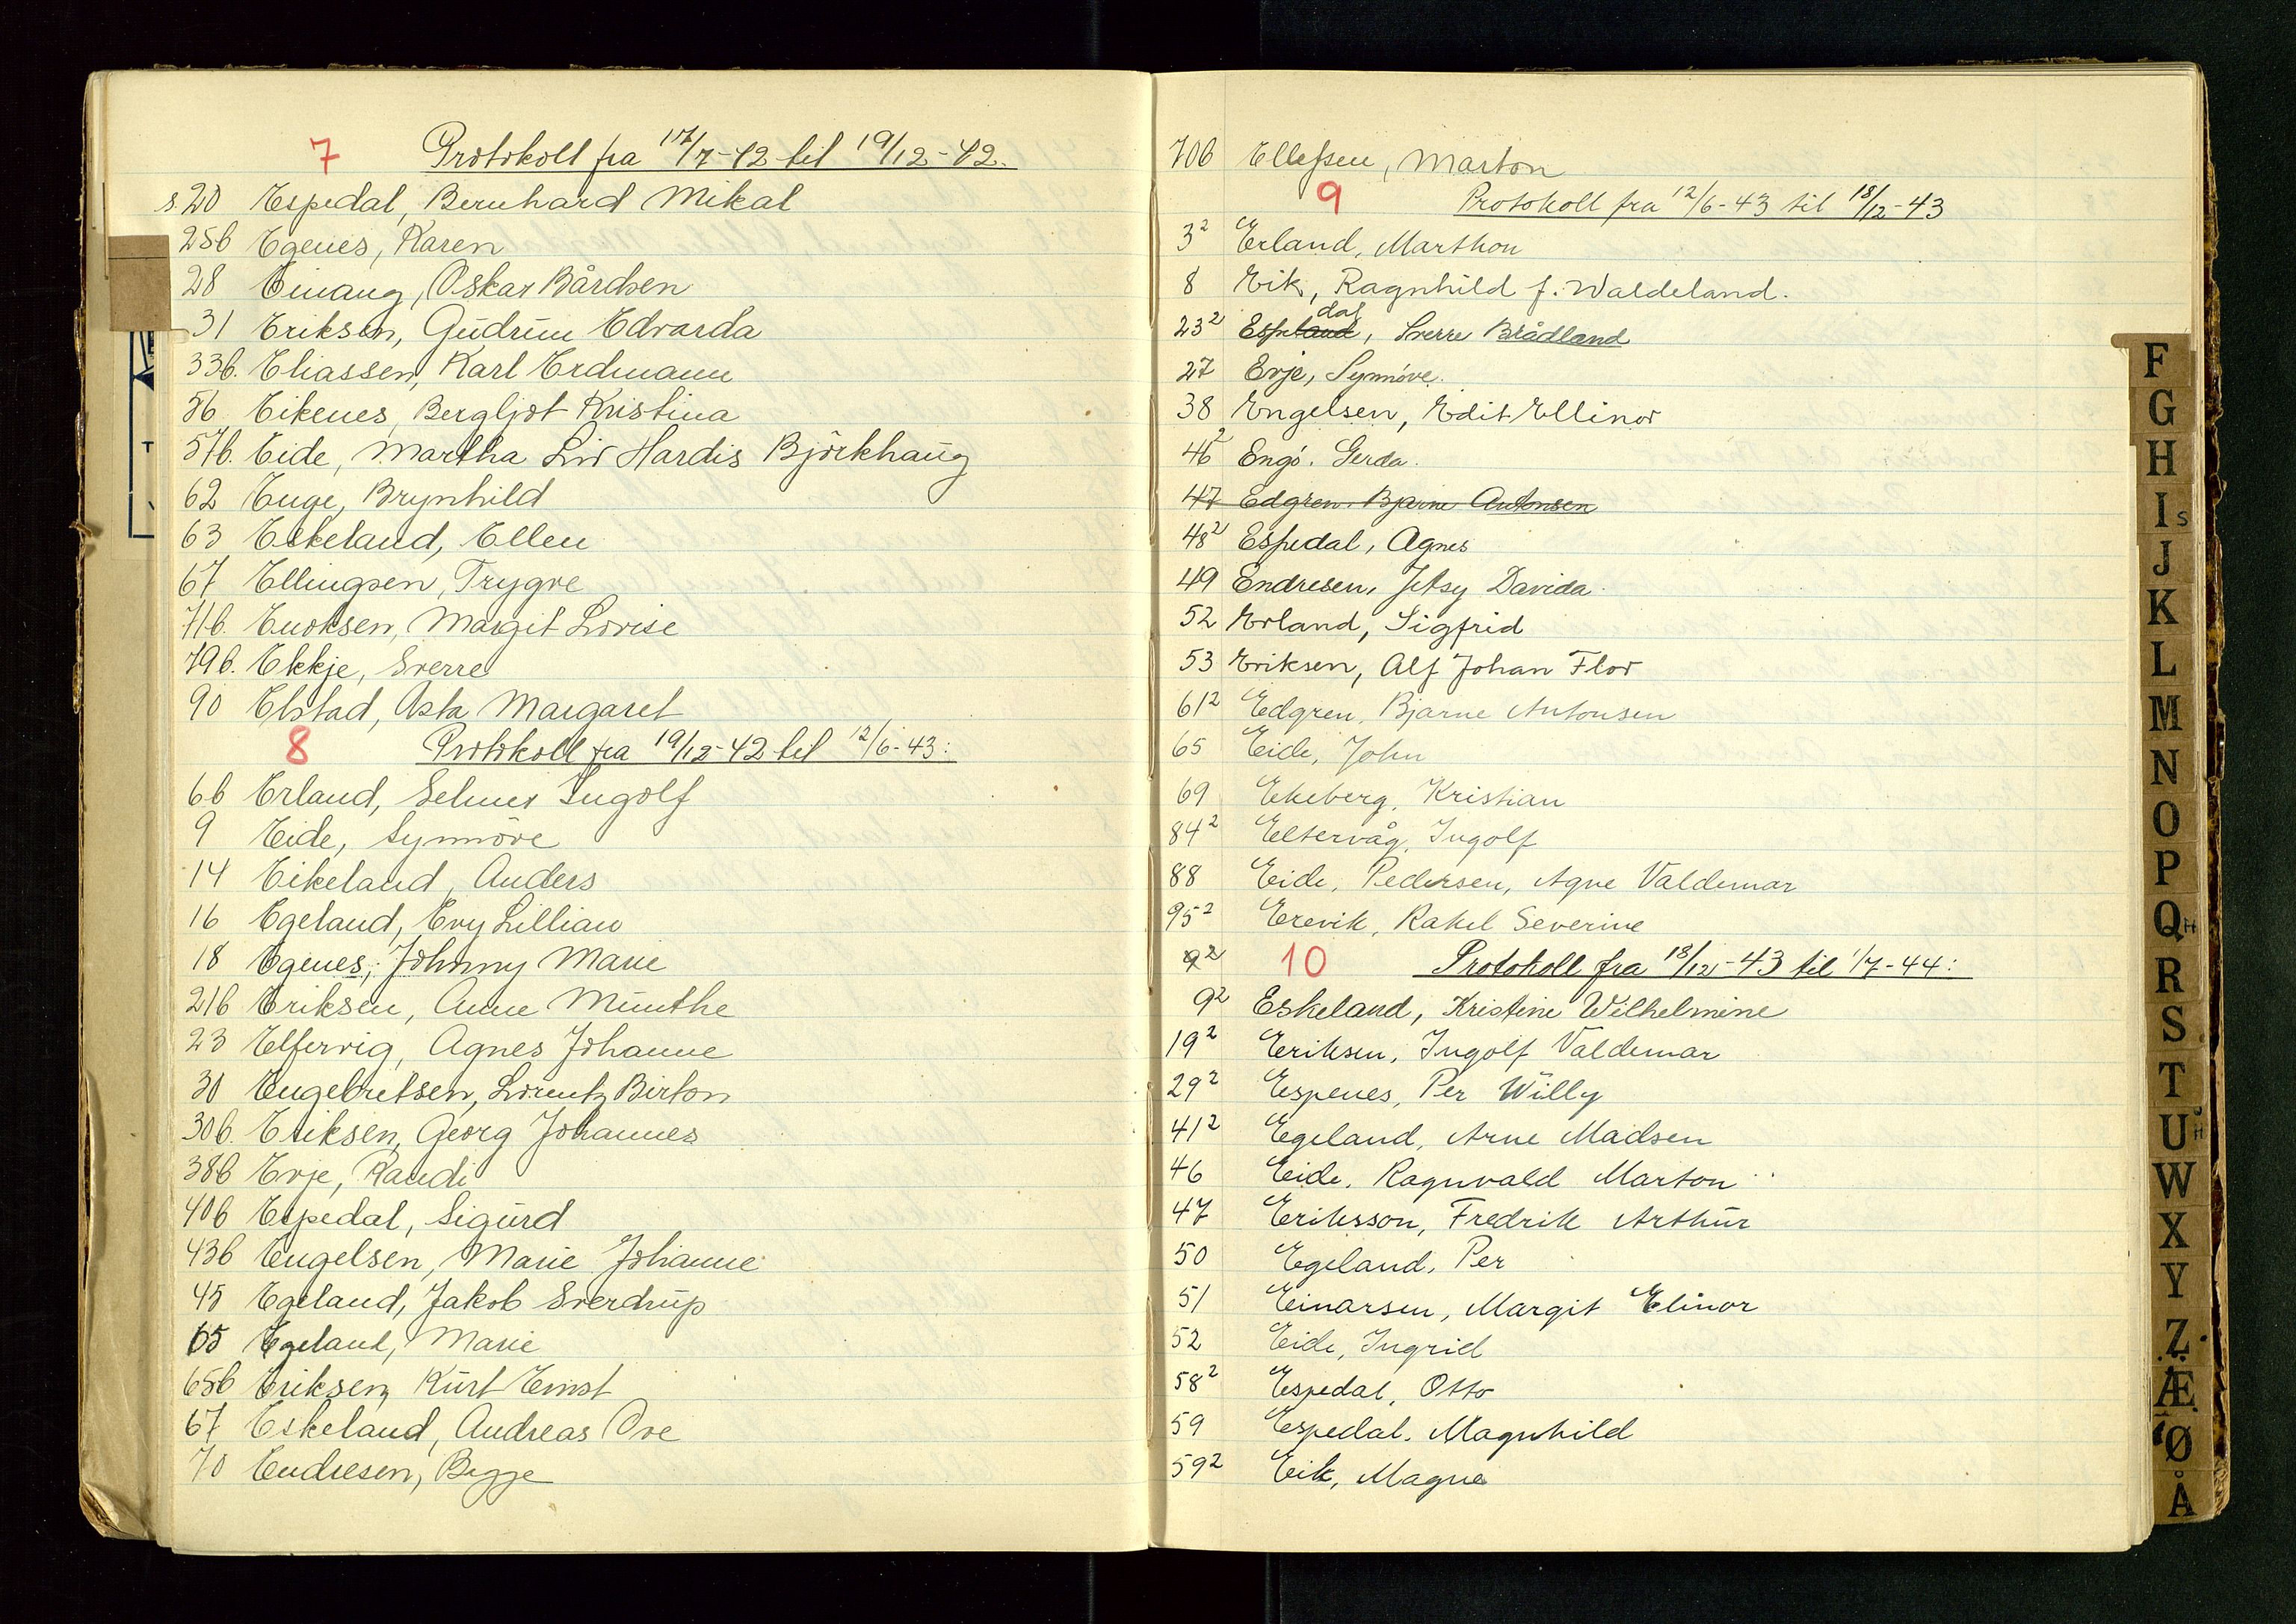 7 Protokoll fra 17/7-42 til 19/12-42.
s. 20 Espedal, Bernhard Mikal
25b Egenes, Karen
28 Einang, Oskar Bårdsen
31 Eriksen, Gudrun Edvarda
33b. Eliassen, Karl Erdmann
56 Eikenes, Bergljot Kristina
57b. Eide, Martha Liv Hardis Björkhaug
62 Enge, Brynhild
63 Eskeland, Ellen
67 Ellingsen, Trygve
71b. Enoksen, Margit Lovise
79b. Ekkje, Sverre
90 Elstad, Asta Margaret
8 Protokoll fra 19/12-42 til 12/6-43:
6b Erland, Selmer Ingolf
9 Eide, Synnöve
14 Eikeland, Anders
16 Egeland, Evy Lillian
18 Egenes, Johnny Marie
21b Eriksen, Anne Munthe
23 Elfervig, Agnes Johanne
30 Engebretsen, Lorentz Birton
30b. Eriksen, Georg Johannes
38b Evje, Randi
40b Espedal, Sigurd
43b Engelsen, Marie Johanne
45 Egeland, Jakob Sverdrup
65 Egeland, Marie
65b Eriksen, Kurt Ernst
67 Eskeland, Andreas Ove
70 Endresen, Begge
70b Ellefsen, Marton
9 Protokoll fra 12/6-43 til 18/12-43
3² Erland, Marthon
8 Eik, Ragnhild f. Waldeland.
dal
23² Espeland, Sverre Brådland
27 Evje, Synnöve.
38 Engelsen, Edit Ellinor
46² Engö. Gerda.
47 Edgren. Bjarne Antonsen
48² Espedal, Agnes
49 Endresen, Jetsy Davida.
52 Erland, Sigfrid
53 Eriksen, Alf Johan Flor
61² Edgren, Bjarne Antonsen
65 Eide, John
69 Ekeberg, Kristian
84² Eltervåg, Ingolf
88 Eide, Pedersen, Agne Valdemar
95² Erevik, Rakel Severine
9² 10 Protokoll fra 18/12-43 til 1/7-44:
9² Eskeland, Kristine Wilhelmine
19² Eriksen, Ingolf Valdemar
29² Espenes, Per Willy
41² Egeland, Arne Madsen
46 Eide, Ragnvald Marton
47 Eriksson, Fredrik Arthur
50 Egeland, Per
51 Einarsen, Margit Elinor
52 Eide, Ingrid
58² Espedal, Otto
59 Espedal, Magnhild
59² Eik, Magne
F
G
H
I s
J
K
L
M
N
O
P
Q
R
S
T
U
W
X
Y
Z
Æ
Ø
Å
T